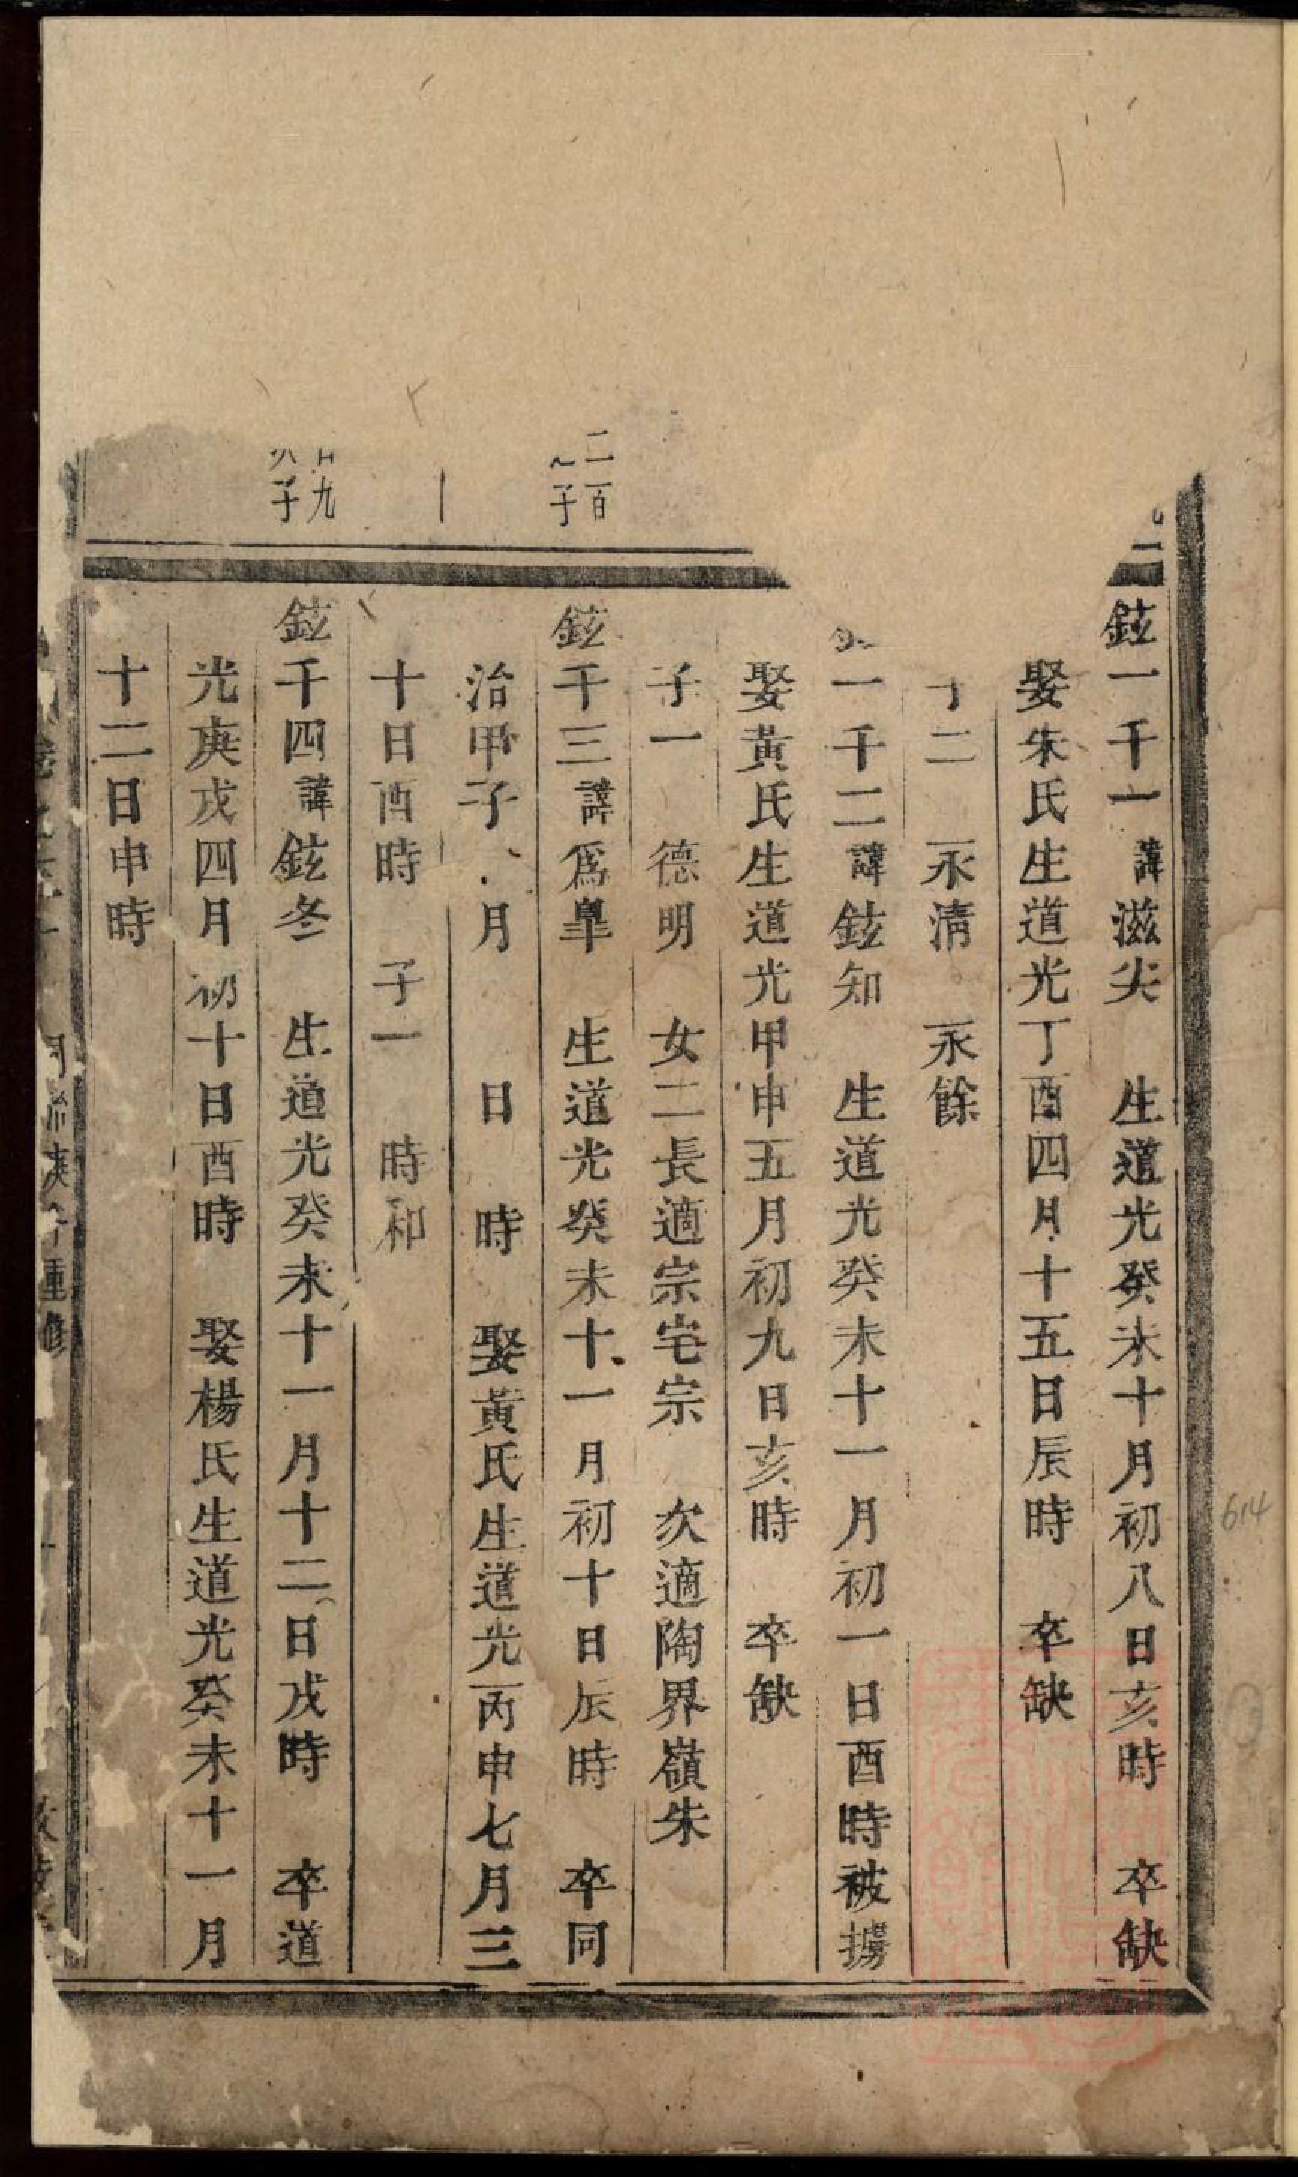 鉉一千一諱滋尖　生道光癸未十月初八日亥時　卒缺
娶朱氏生道光丁酉四月十五日辰時　卒缺
二　永淸　永餘
一千二諱鉉知　生道光癸未十一月初一日酉時被擄
娶黃氏生道光甲申五月初九日亥時　卒缺
子一　德明　女二長適宗宅宗　次適陶界嶺朱
二百
子
鉉千三諱爲臯　生道光癸未十一月初十日辰時　卒同
治甲子　月　日　時　娶黃氏生道光丙申七月三
十日酉時　子一　時和
九
子
鉉千四諱鉉冬　生道光癸未十一月十二日戌時　卒道
光庚戌四月初十日酉時　娶楊氏生道光癸未十一月
十二日申時
重修
614